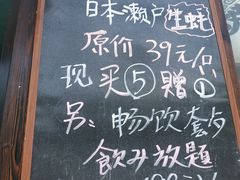 日本瀬户生蚝
原价 39元/只
现买⑤赠①
另: 畅饮套
飲み放題